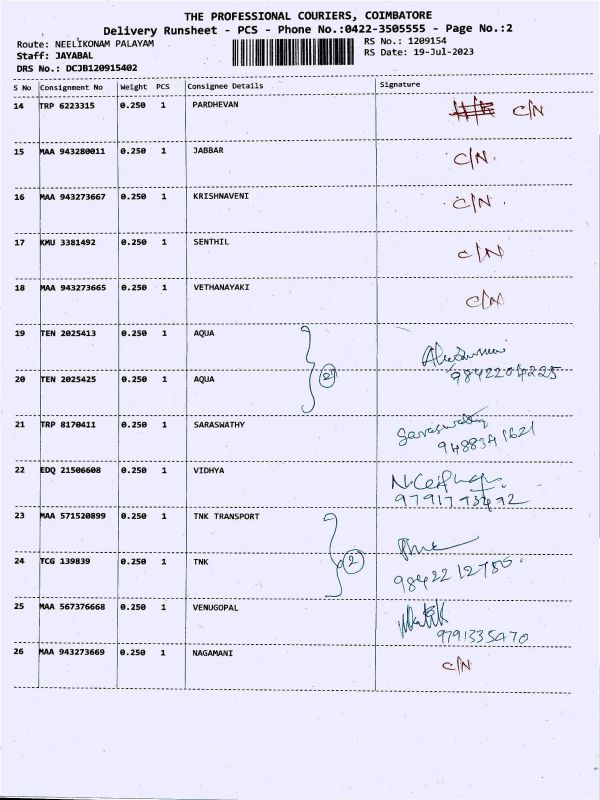 THE PROFESSIONAL COURIERS, COIMBATORE
Delivery Runsheet - PCS - Phone No.:0422-3505555 - Page No.:2
Route: NEELIKONAM PALAYAM RS No.: 1209154
Staff: JAYABAL RS Date: 19-Jul-2023
DRS No.: DCJB120915402
S No Consignment No Weight PCS Consignee Details Signature
14 TRP 6223315 0.250 1 PARDHEVAN C/N
15 MAA 943280011 0.250 1 JABBAR C/N.
16 MAA 943273667 0.250 1 KRISHNAVENI C/N.
17 KMU 3381492 0.250 1 SENTHIL C/N
18 MAA 943273665 0.250 1 VETHANAYAKI C/N
19 TEN 2025413 0.250 1 AQUA
20 TEN 2025425 0.250 1 AQUA 2 9842204225
21 TRP 8170411 0.250 1 SARASWATHY Saraswathy
9488341621
22 EDQ 21506608 0.250 1 VIDHYA
9791773472
23 MAA 571520899 0.250 1 TNK TRANSPORT
24 TCG 139839 0.250 1 TNK 2 9842212755.
25 MAA 567376668 0.250 1 VENUGOPAL
9791335470
26 MAA 943273669 0.250 1 NAGAMANI C/N